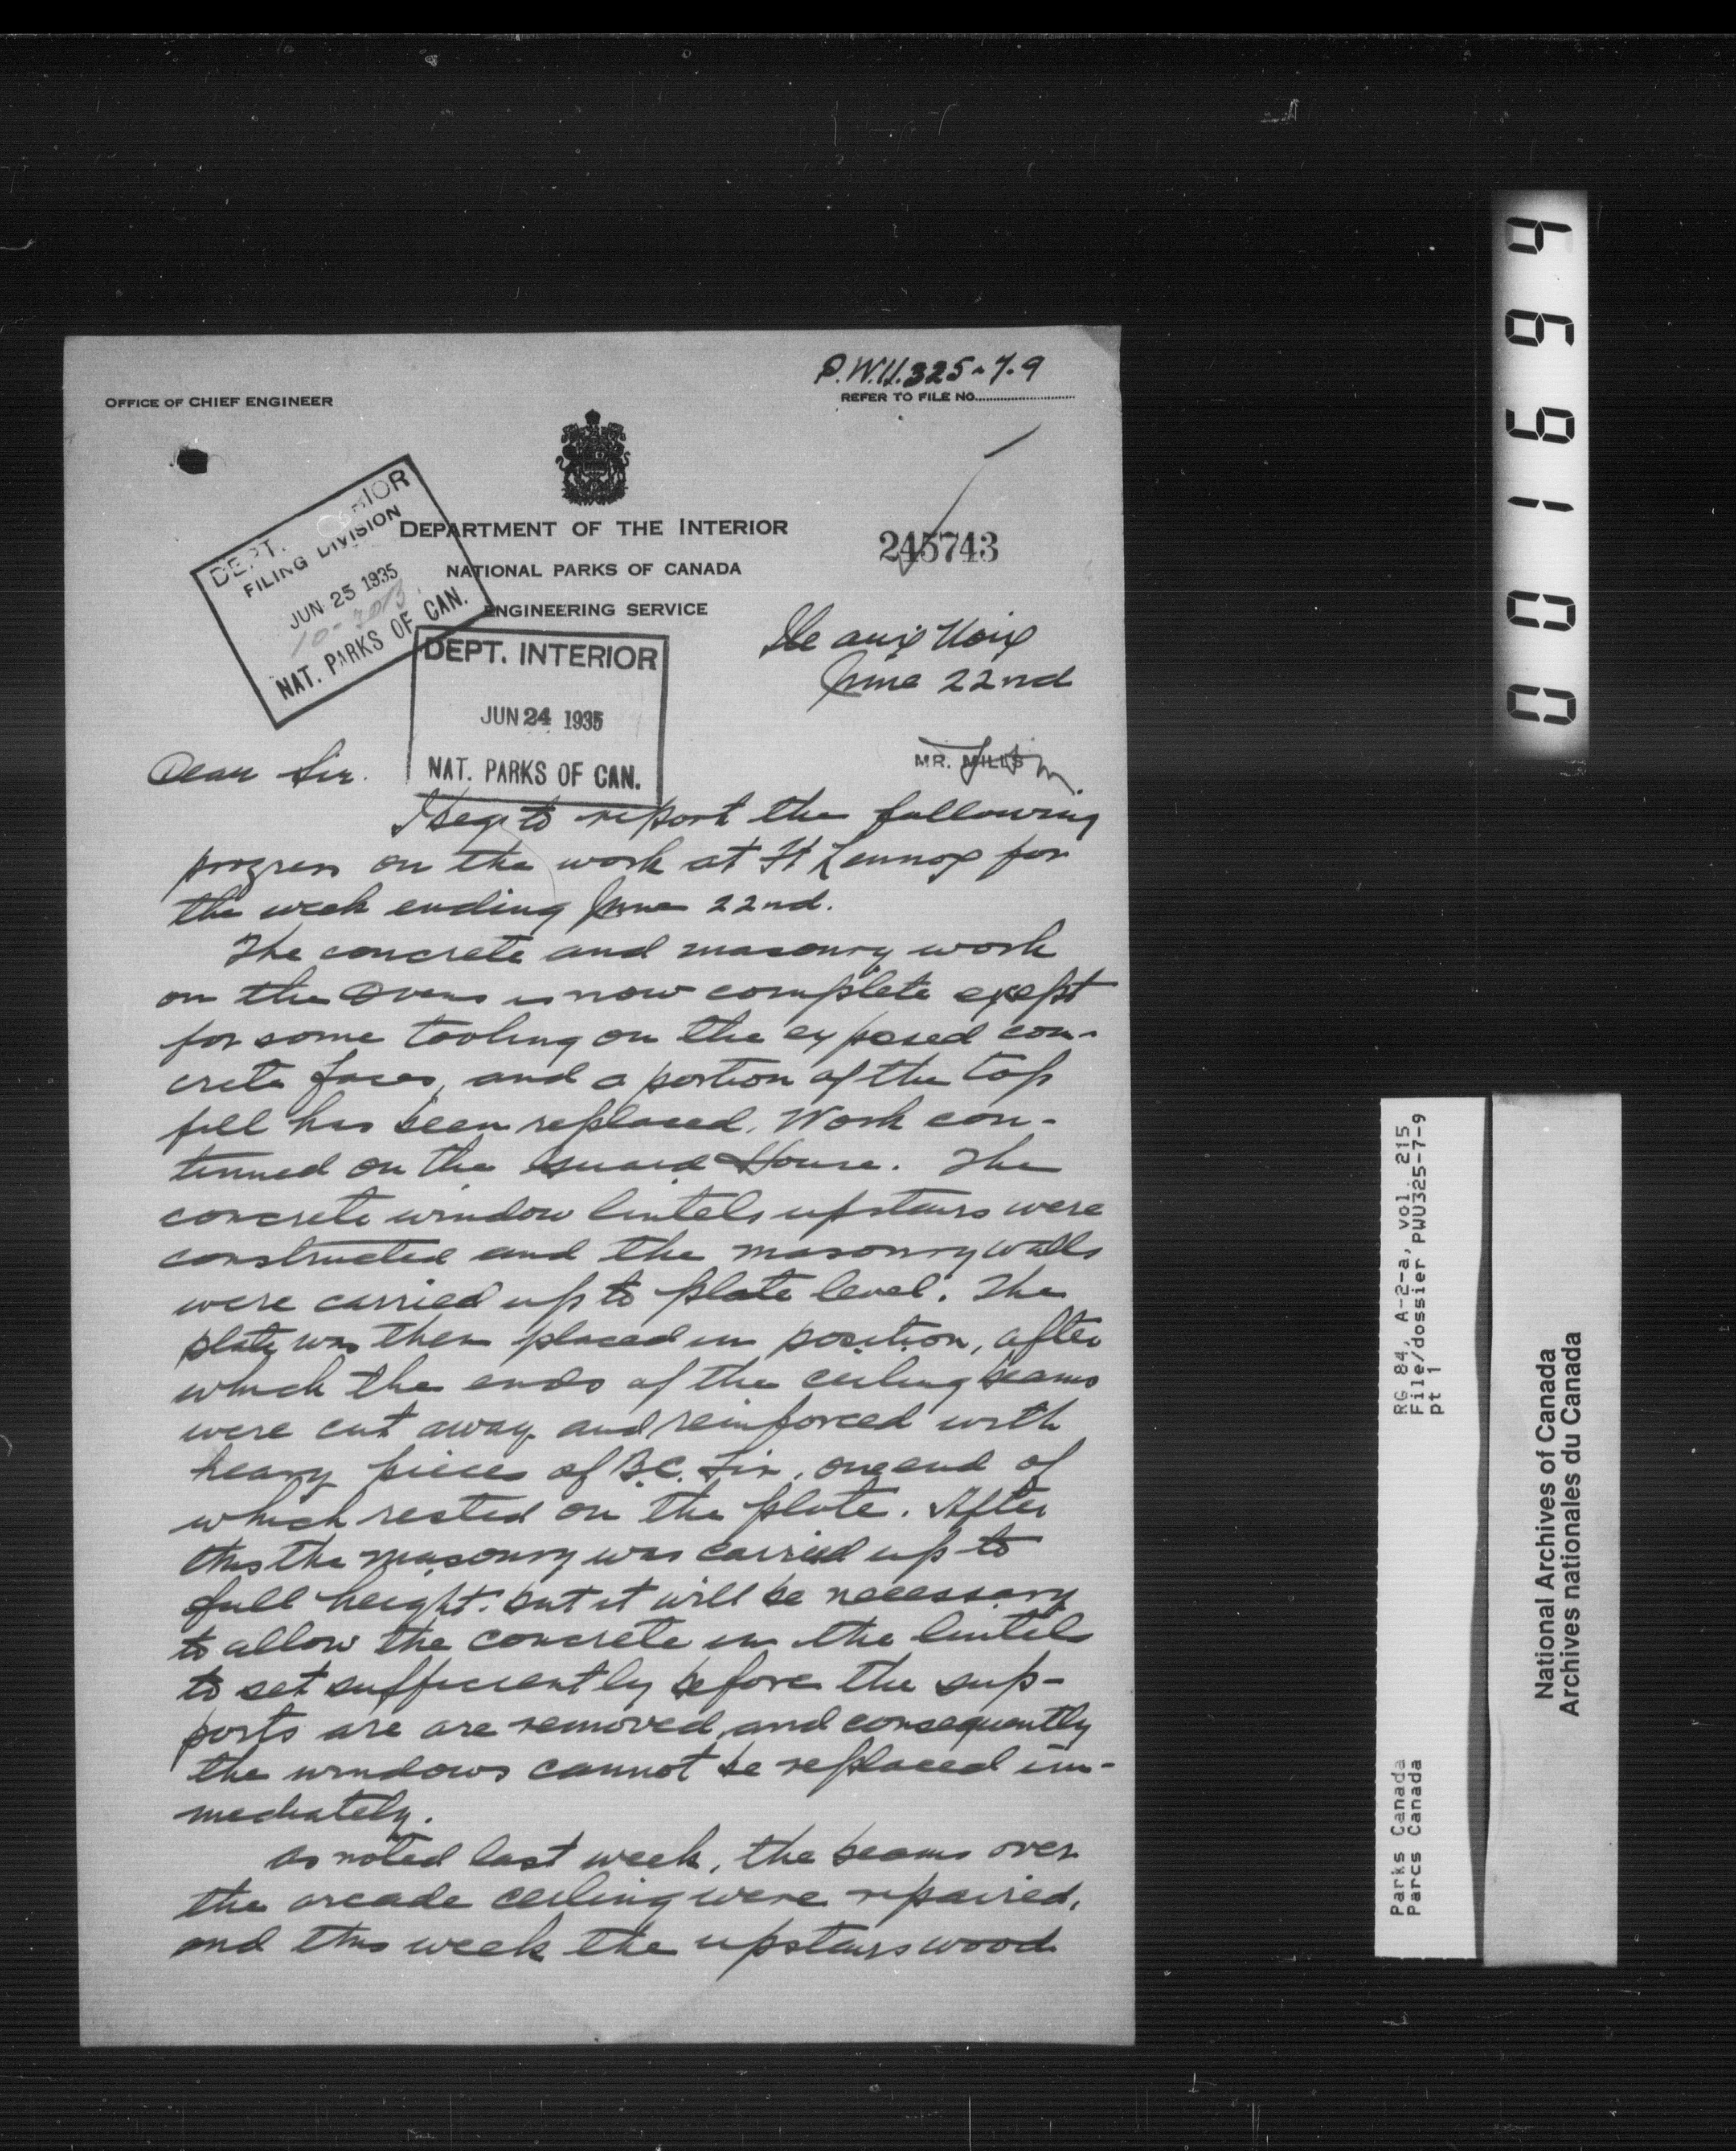 P.W.U.325-7-9
OFFICE OF CHIEF ENGINEER
REFER TO FILE NO.
DEPARTMENT OF THE INTERIOR
NATIONAL PARKS OF CANADA
ENGINEERING SERVICE
245743
DEPT.
FILING DIVISION
JUN 25 1935
NAT. PARKS OF CAN.
DEPT. INTERIOR
JUN 24 1935
NAT. PARKS OF CAN.
Ile aux Noix
June 22nd
MR. MILLS
Dear Sir.
I beg to report the following
progress on the work at Ft Lennox for
the week ending June 22nd.
The concrete and masonry work
on the Ovens is now complete exept
for some tooling on the exposed con-
crete faces, and a portion of the top
fill has been replaced. Work con-
tinued on the Guard House. The
concrete window lintels upstairs were
constructed and the masonry walls
were carried up to plate level. The
plate was then placed in position, after
which the ends of the ceiling beams
were cut away and reinforced with
heavy pieces of B.C. Fir, one end of
which rested on the plate. After
this the masonry was carried up to
full height. but it will be necessary
to allow the concrete in the lintels
to set sufficiently before the sup-
ports are are removed, and consequently
the windows cannot be replaced im-
mediately.
As noted last week, the beams over
the arcade ceiling were repaired,
and this week the upstairs wood
001694
RG 84, A-2-a, vol. 215
File/dossier PWU325-7-9
pt 1
Parks Canada
Parcs Canada
National Archives of Canada
Archives nationales du Canada